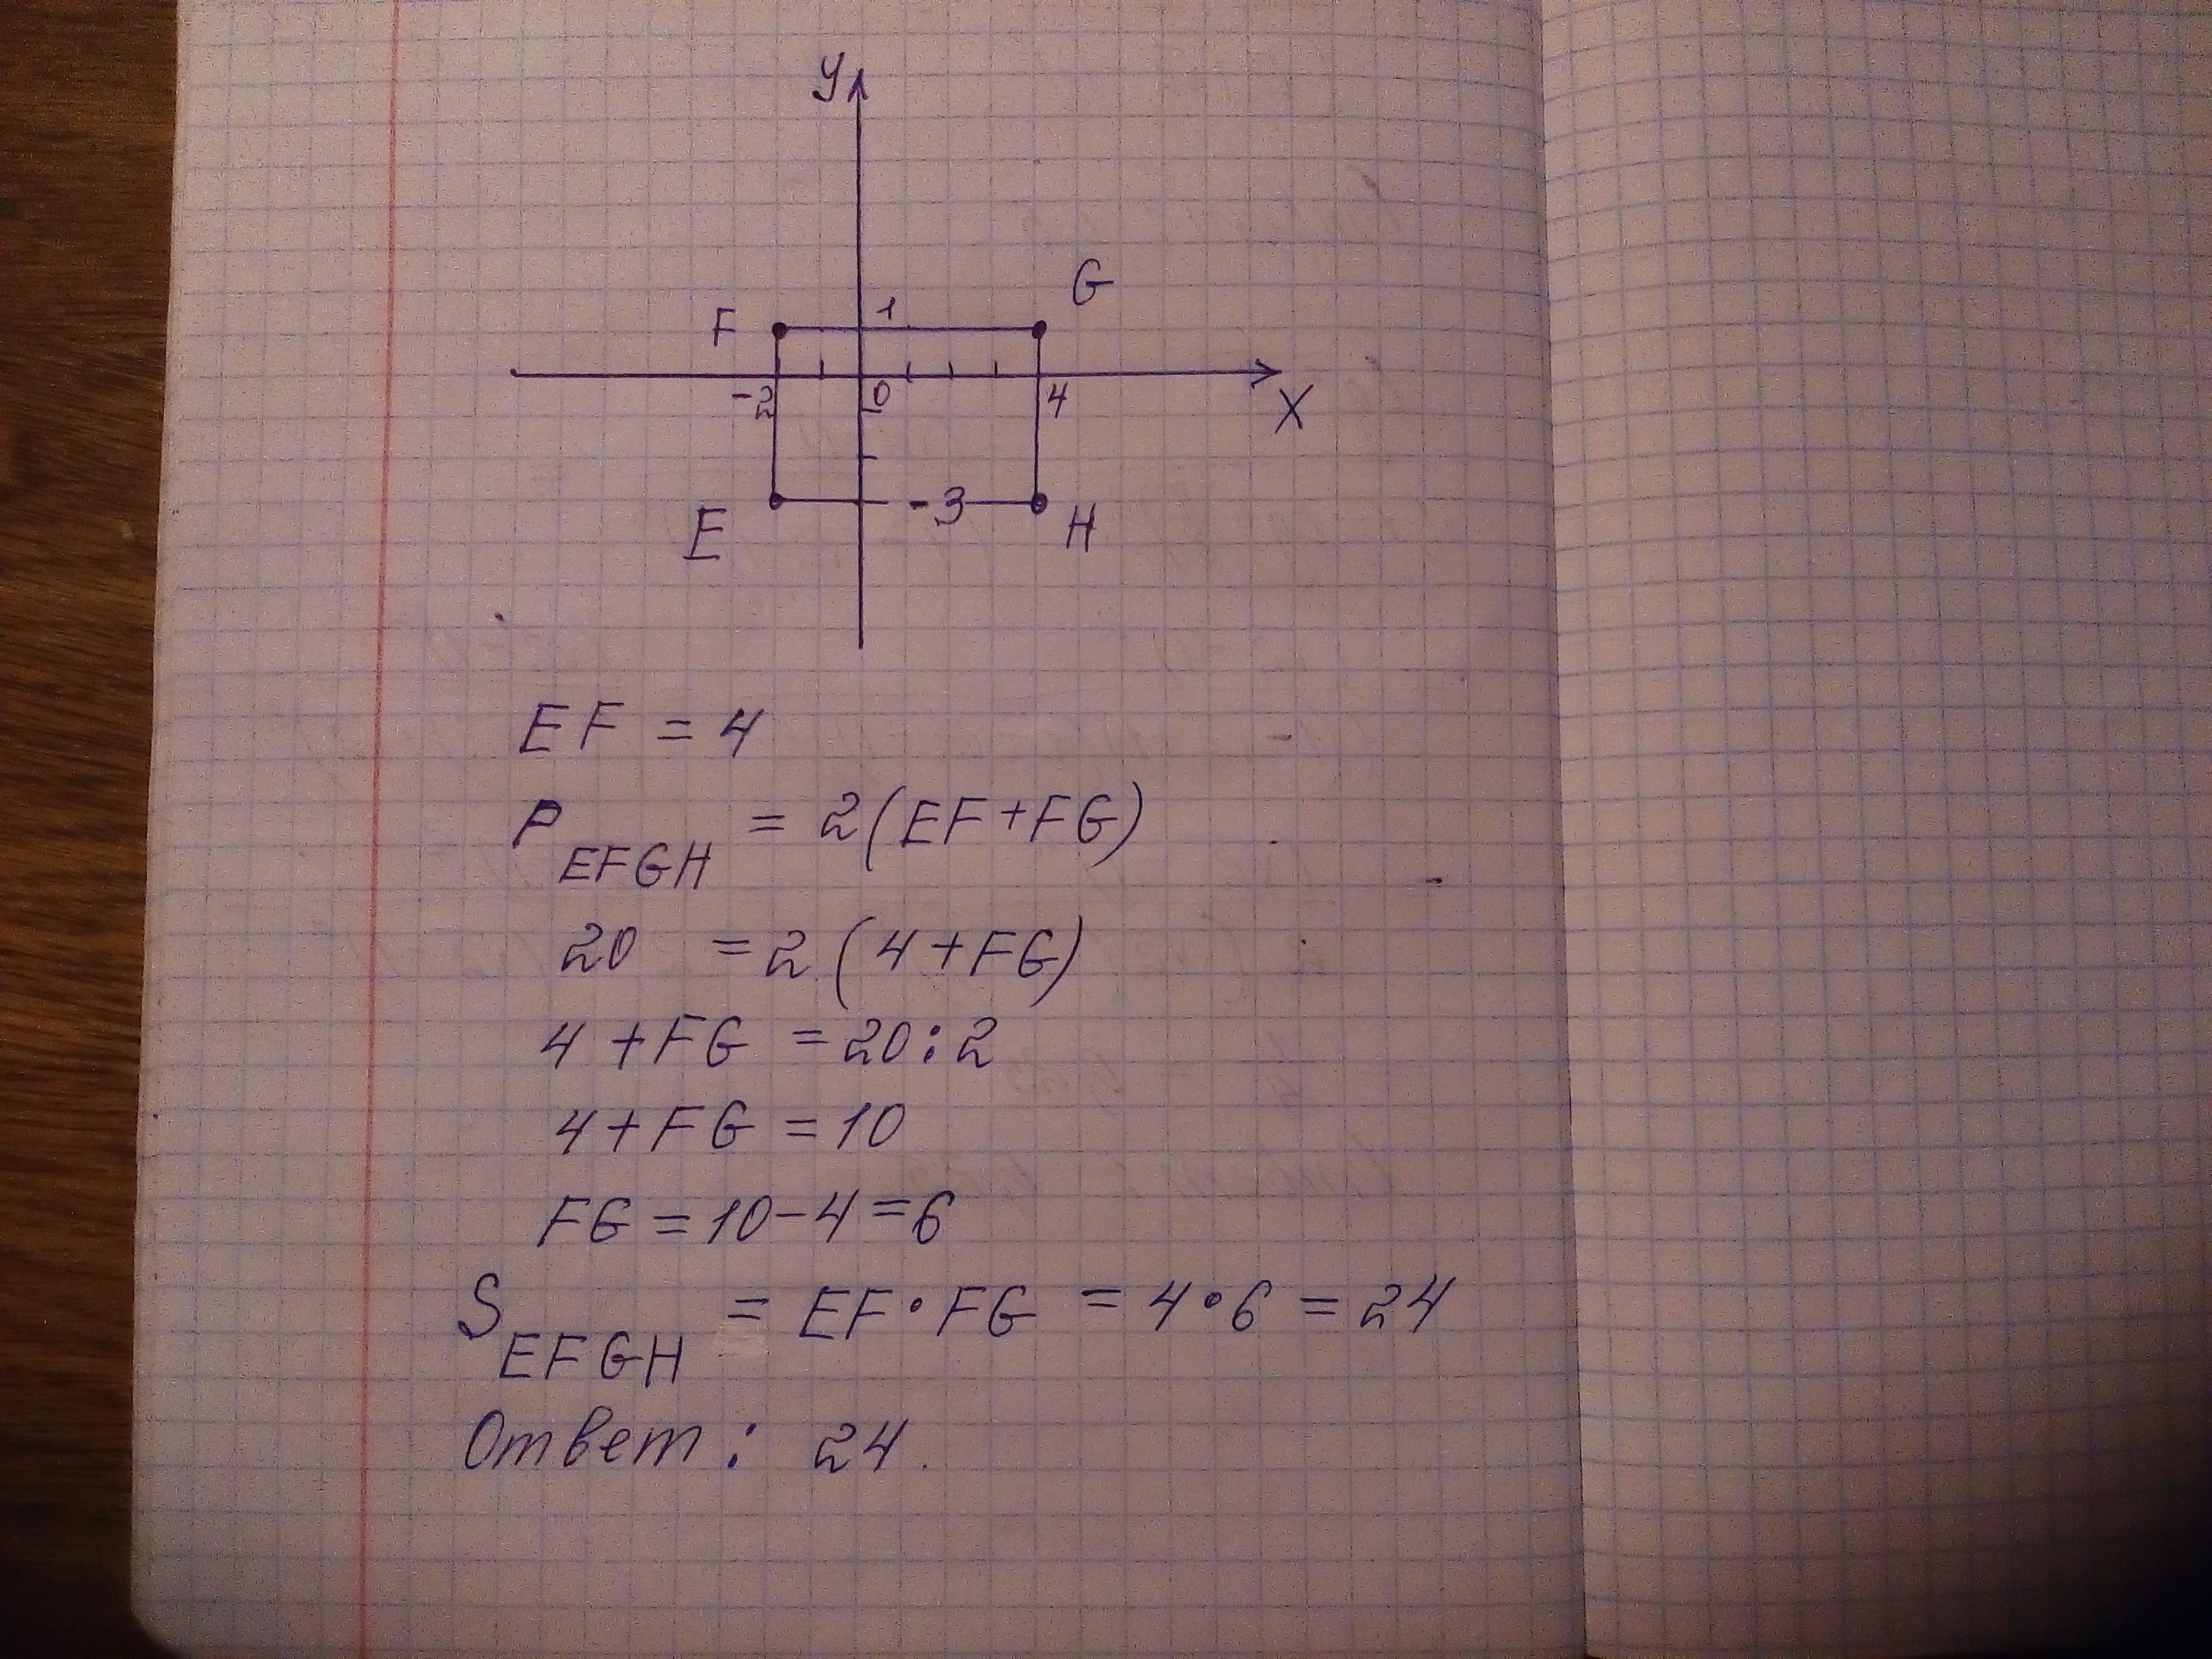 y
G
F 1
-2 0 4
X
-3
E H
EF = 4
P EFGH = 2(EF+FG)
20 = 2(4+FG)
4+FG = 20:2
4+FG = 10
FG = 10-4=6
S EFGH = EF·FG = 4·6 = 24
Ответ: 24.